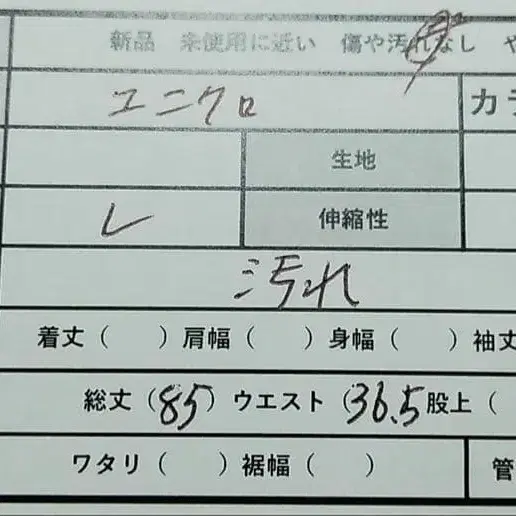 新品 未使用に近い 傷や汚れなし や
ユニクロ カラ
生地
レ 伸縮性
汚れ
着丈( )肩幅( )身幅( )袖丈
総丈(85)ウエスト(36.5 股上(
ワタリ( )裾幅( ) 管